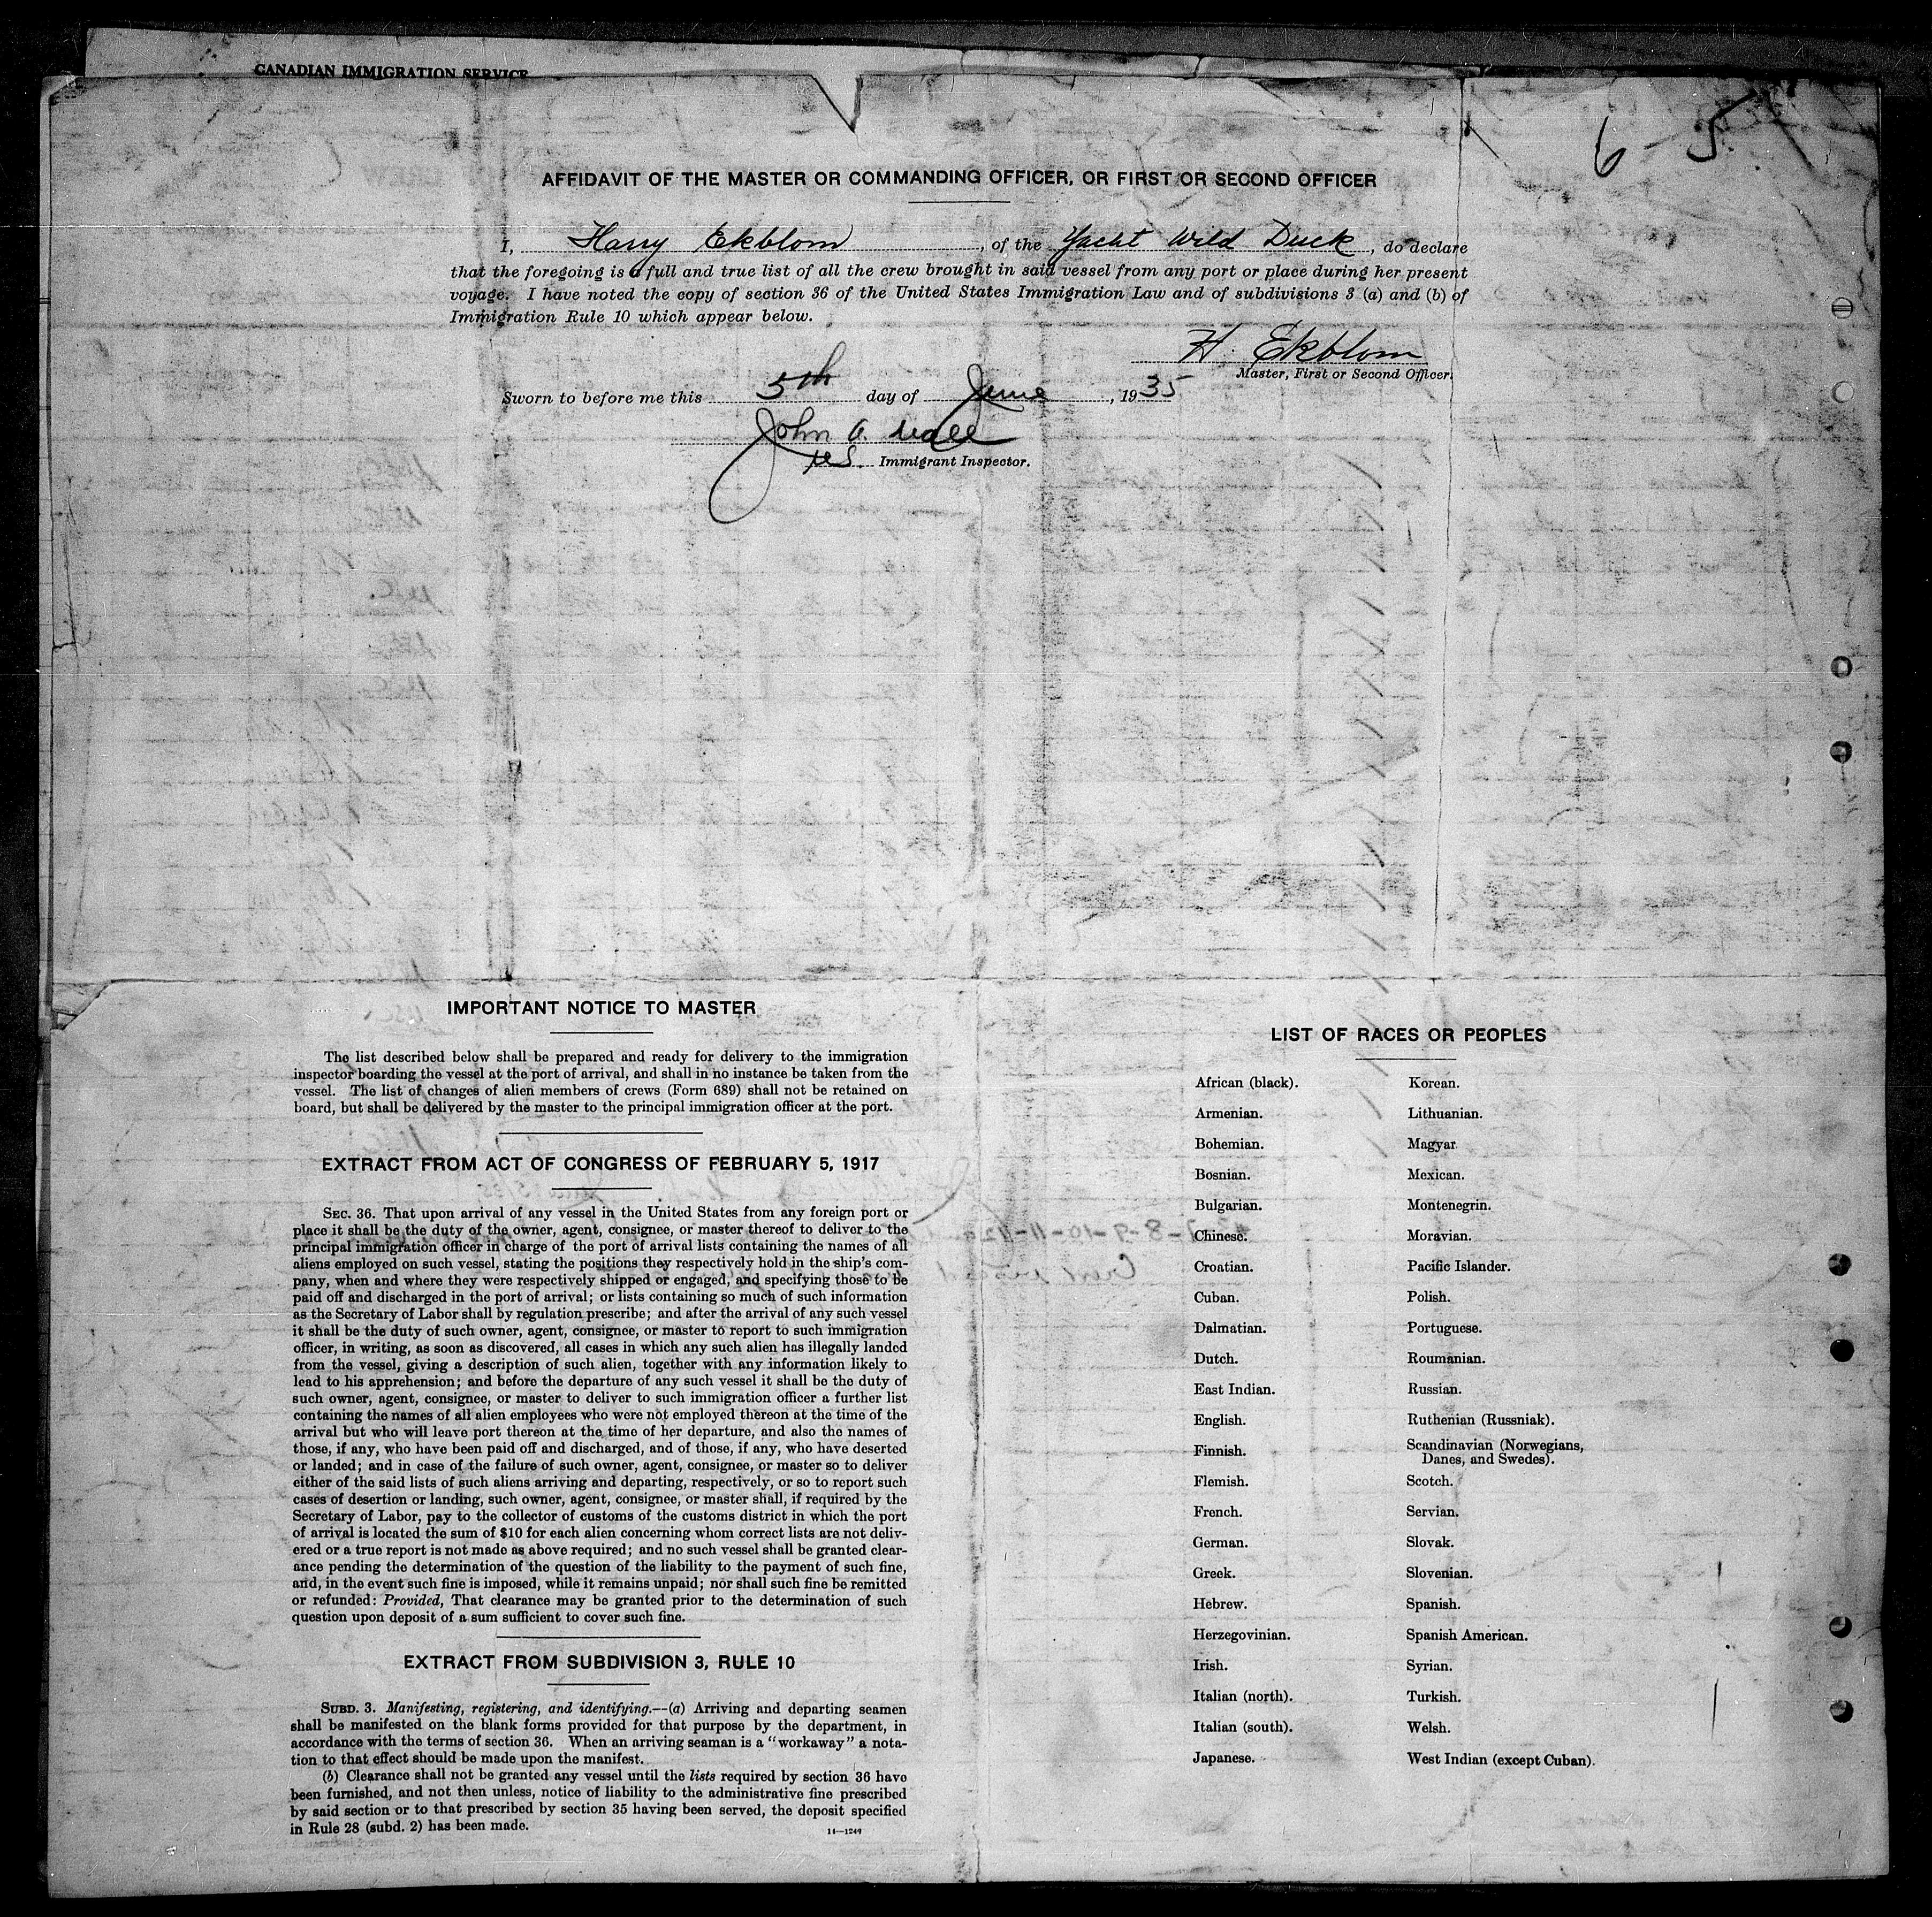 CANADIAN IMMIGRATION SERVICE
6-5
AFFIDAVIT OF THE MASTER OR COMMANDING OFFICER, OR FIRST OR SECOND OFFICER
I, Harry Ekblom, of the Yacht Wild Duck, do declare
that the foregoing is a full and true list of all the crew brought in said vessel from any port or place during her present
voyage. I have noted the copy of section 36 of the United States Immigration Law and of subdivisions 3 (a) and (b) of
Immigration Rule 10 which appear below.
H. Ekblom
Master, First or Second Officer.
Sworn to before me this 5th day of June, 1935
John A.
Immigrant Inspector.
IMPORTANT NOTICE TO MASTER
The list described below shall be prepared and ready for delivery to the immigration
inspector boarding the vessel at the port of arrival, and shall in no instance be taken from the
vessel. The list of changes of alien members of crews (Form 689) shall not be retained on
board, but shall be delivered by the master to the principal immigration officer at the port.
EXTRACT FROM ACT OF CONGRESS OF FEBRUARY 5, 1917
SEC. 36. That upon arrival of any vessel in the United States from any foreign port or
place it shall be the duty of the owner, agent, consignee, or master thereof to deliver to the
principal immigration officer in charge of the port of arrival lists containing the names of all
aliens employed on such vessel, stating the positions they respectively hold in the ship's com-
pany, when and where they were respectively shipped or engaged, and specifying those to be
paid off and discharged in the port of arrival; or lists containing so much of such information
as the Secretary of Labor shall by regulation prescribe; and after the arrival of any such vessel
it shall be the duty of such owner, agent, consignee, or master to report to such immigration
officer, in writing, as soon as discovered, all cases in which any such alien has illegally landed
from the vessel, giving a description of such alien, together with any information likely to
lead to his apprehension; and before the departure of any such vessel it shall be the duty of
such owner, agent, consignee, or master to deliver to such immigration officer a further list
containing the names of all alien employees who were not employed thereon at the time of the
arrival but who will leave port thereon at the time of her departure, and also the names of
those, if any, who have been paid off and discharged, and of those, if any, who have deserted
or landed; and in case of the failure of such owner, agent, consignee, or master so to deliver
either of the said lists of such aliens arriving and departing, respectively, or so to report such
cases of desertion or landing, such owner, agent, consignee, or master shall, if required by the
Secretary of Labor, pay to the collector of customs of the customs district in which the port
of arrival is located the sum of $10 for each alien concerning whom correct lists are not deliv-
ered or a true report is not made as above required; and no such vessel shall be granted clear-
ance pending the determination of the question of the liability to the payment of such fine,
and, in the event such fine is imposed, while it remains unpaid; nor shall such fine be remitted
or refunded: Provided, That clearance may be granted prior to the determination of such
question upon deposit of a sum sufficient to cover such fine.
EXTRACT FROM SUBDIVISION 3, RULE 10
SUBD. 3. Manifesting, registering, and identifying.—(a) Arriving and departing seamen
shall be manifested on the blank forms provided for that purpose by the department, in
accordance with the terms of section 36. When an arriving seaman is a "workaway" a nota-
tion to that effect should be made upon the manifest.
(b) Clearance shall not be granted any vessel until the lists required by section 36 have
been furnished, and not then unless, notice of liability to the administrative fine prescribed
by said section or to that prescribed by section 35 having been served, the deposit specified
in Rule 28 (subd. 2) has been made.
14—1249
LIST OF RACES OR PEOPLES
African (black).
Armenian.
Bohemian.
Bosnian.
Bulgarian.
Chinese.
Croatian.
Cuban.
Dalmatian.
Dutch.
East Indian.
English.
Finnish.
Flemish.
French.
German.
Greek.
Hebrew.
Herzegovinian.
Irish.
Italian (north).
Italian (south).
Japanese.
Korean.
Lithuanian.
Magyar
Mexican.
Montenegrin.
Moravian.
Pacific Islander.
Polish.
Portuguese.
Roumanian.
Russian.
Ruthenian (Russniak).
Scandinavian (Norwegians,
Danes, and Swedes).
Scotch.
Servian.
Slovak.
Slovenian.
Spanish.
Spanish American.
Syrian.
Turkish.
Welsh.
West Indian (except Cuban).